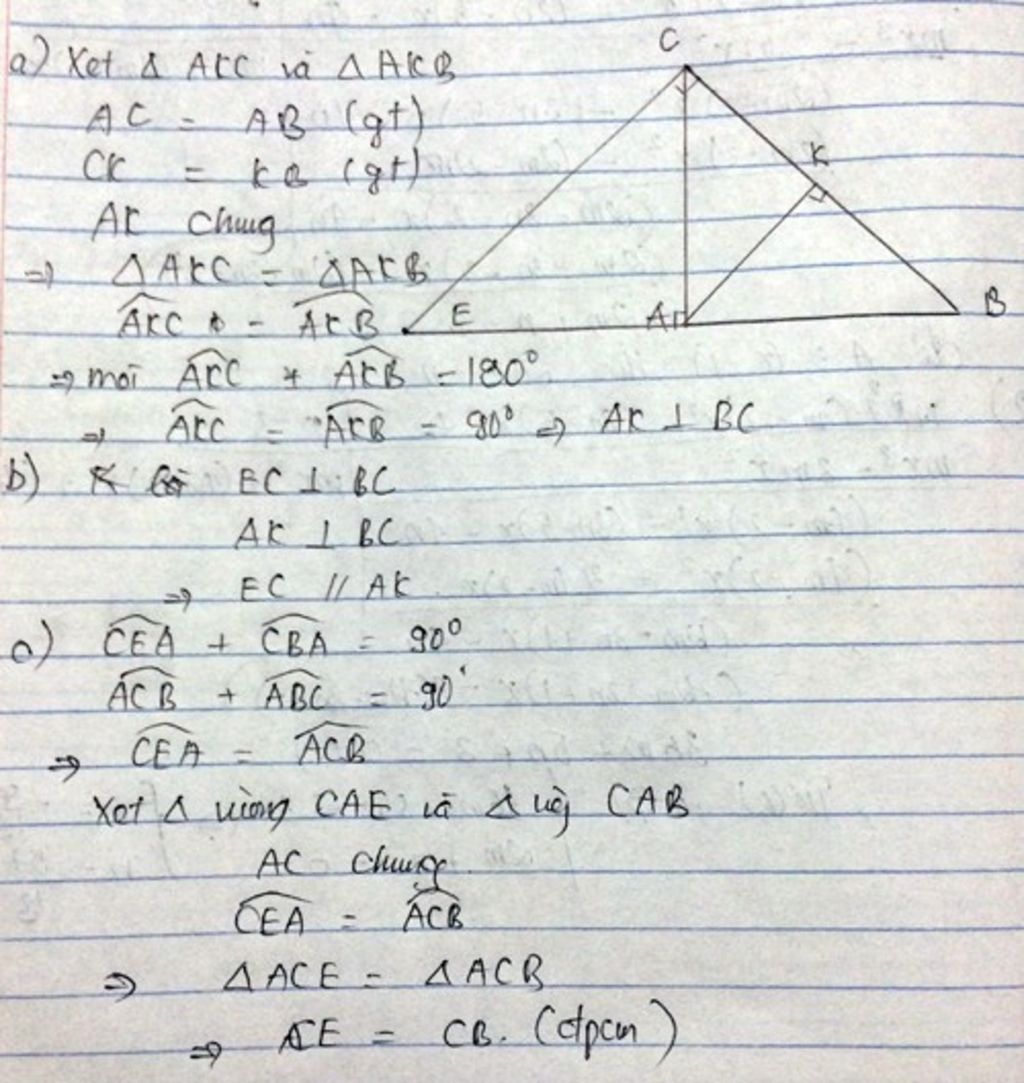 a) Xet Δ AKC và Δ AKB
AC = AB (gt)
CK = KB (gt)
AK chung
⇒ Δ AKC = Δ AKB
AKC = AKB
⇒ mới AKC + AKB = 180°
⇒ AKC = AKB = 90° ⇒ AK ⊥ BC
C
K
E
A
B
b) EC ⊥ BC
AK ⊥ BC
⇒ EC // AK
c) CEA + CBA = 90°
ACB + ABC = 90°
⇒ CEA = ACB
Xet Δ vuông CAE và Δ CAB
AC chung
CEA = ACB
⇒ Δ ACE = Δ ACB
⇒ CE = CB. (đpcm)